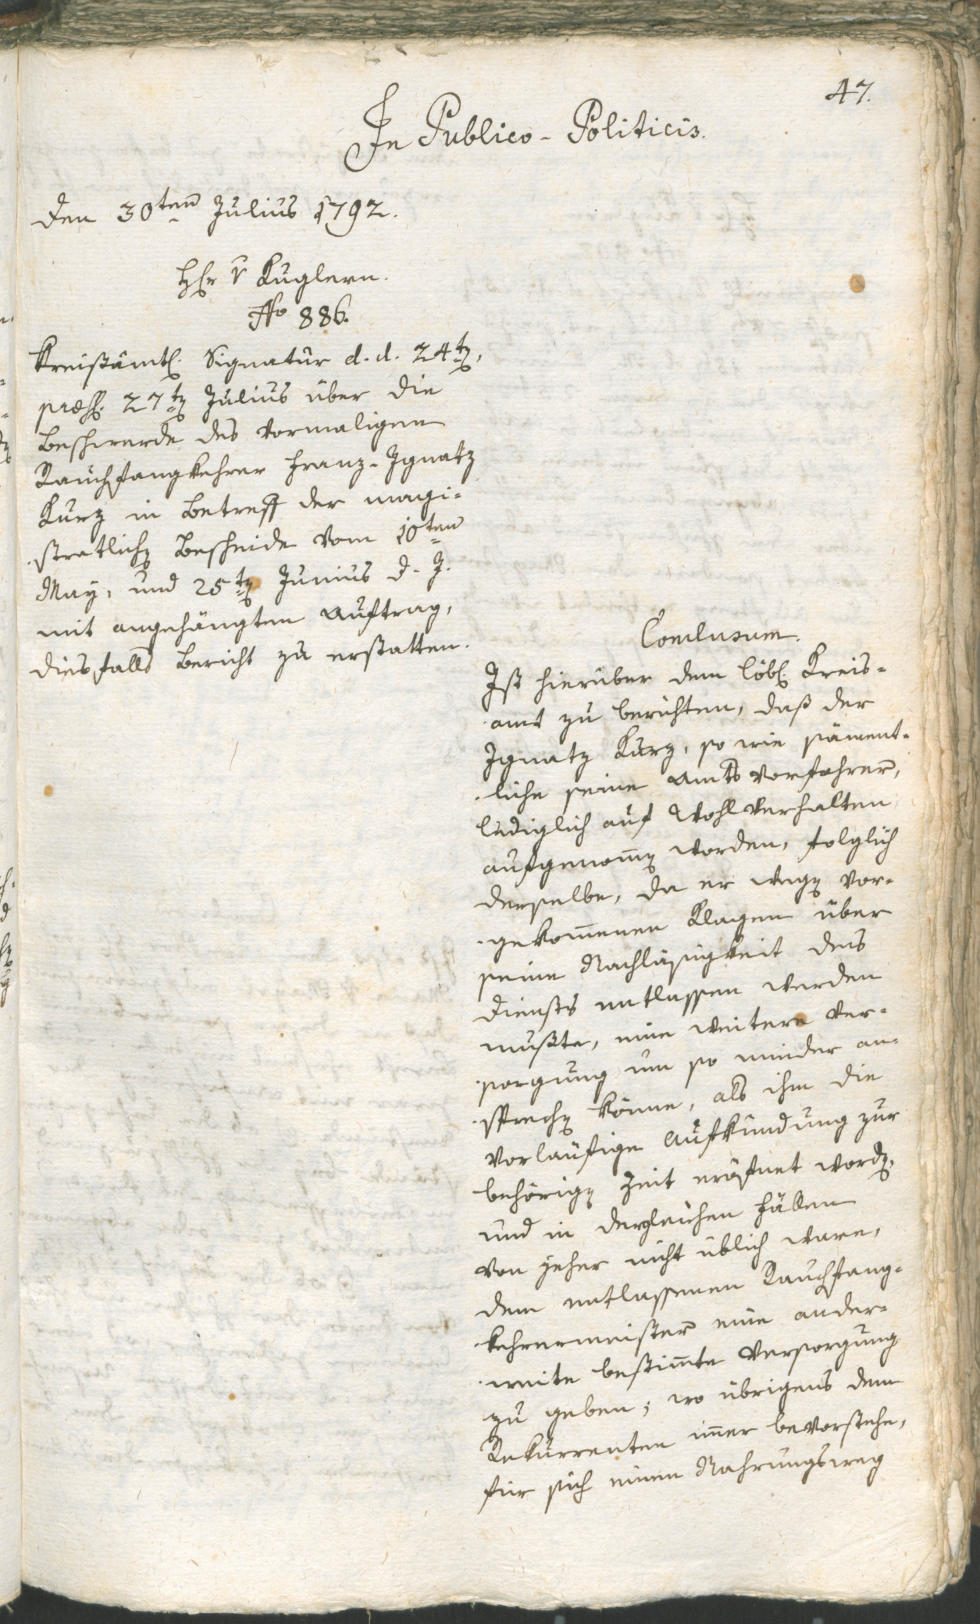 47.
In Publico-Politicis.
Den 30ten Julius 1792.
H̄r v Kuglern.
No 886.
Kreißämtl. Signatur d. d. 24tn,
præs. 27tn Julius über die
Beschwerde des vormaligen
Rauchfangkehrer Franz-Ignatz
Kurz in Betreff der magi-
stratlichn Bescheide vom 10ten
May, und 25tn Junius d. J.
mit angehängtem Auftrag,
diesfalls Bericht zu erstatten.
Conclusum.
Ist hierüber dem löbl. Kreis-
amt zu berichten, daß der
Ignatz Kurz, so wie säment-
liche seine Amts vorfahrer,
lediglich auf Wohlverhalten
aufgenom̄n worden, folglich
derselbe, da er wegn vor-
gekom̄enen Klagen über
seine Nachläßigkeit des
Diensts entlassen werden
mußte, eine weitere Ver-
sorgung um so minder an-
sprechn könne, als ihm die
vorläufige Aufkündung zur
behörign Zeit eröfnet wordn,
und in dergleichen Fällen
von jeher nicht üblich ware,
dem entlassenen Rauchfang-
kehrermeister eine ander-
weite bestim̄te Versorgung
zu geben; wo übrigens dem
Rekurrenten im̄er bevorstehe,
für sich einen Nahrungsweg